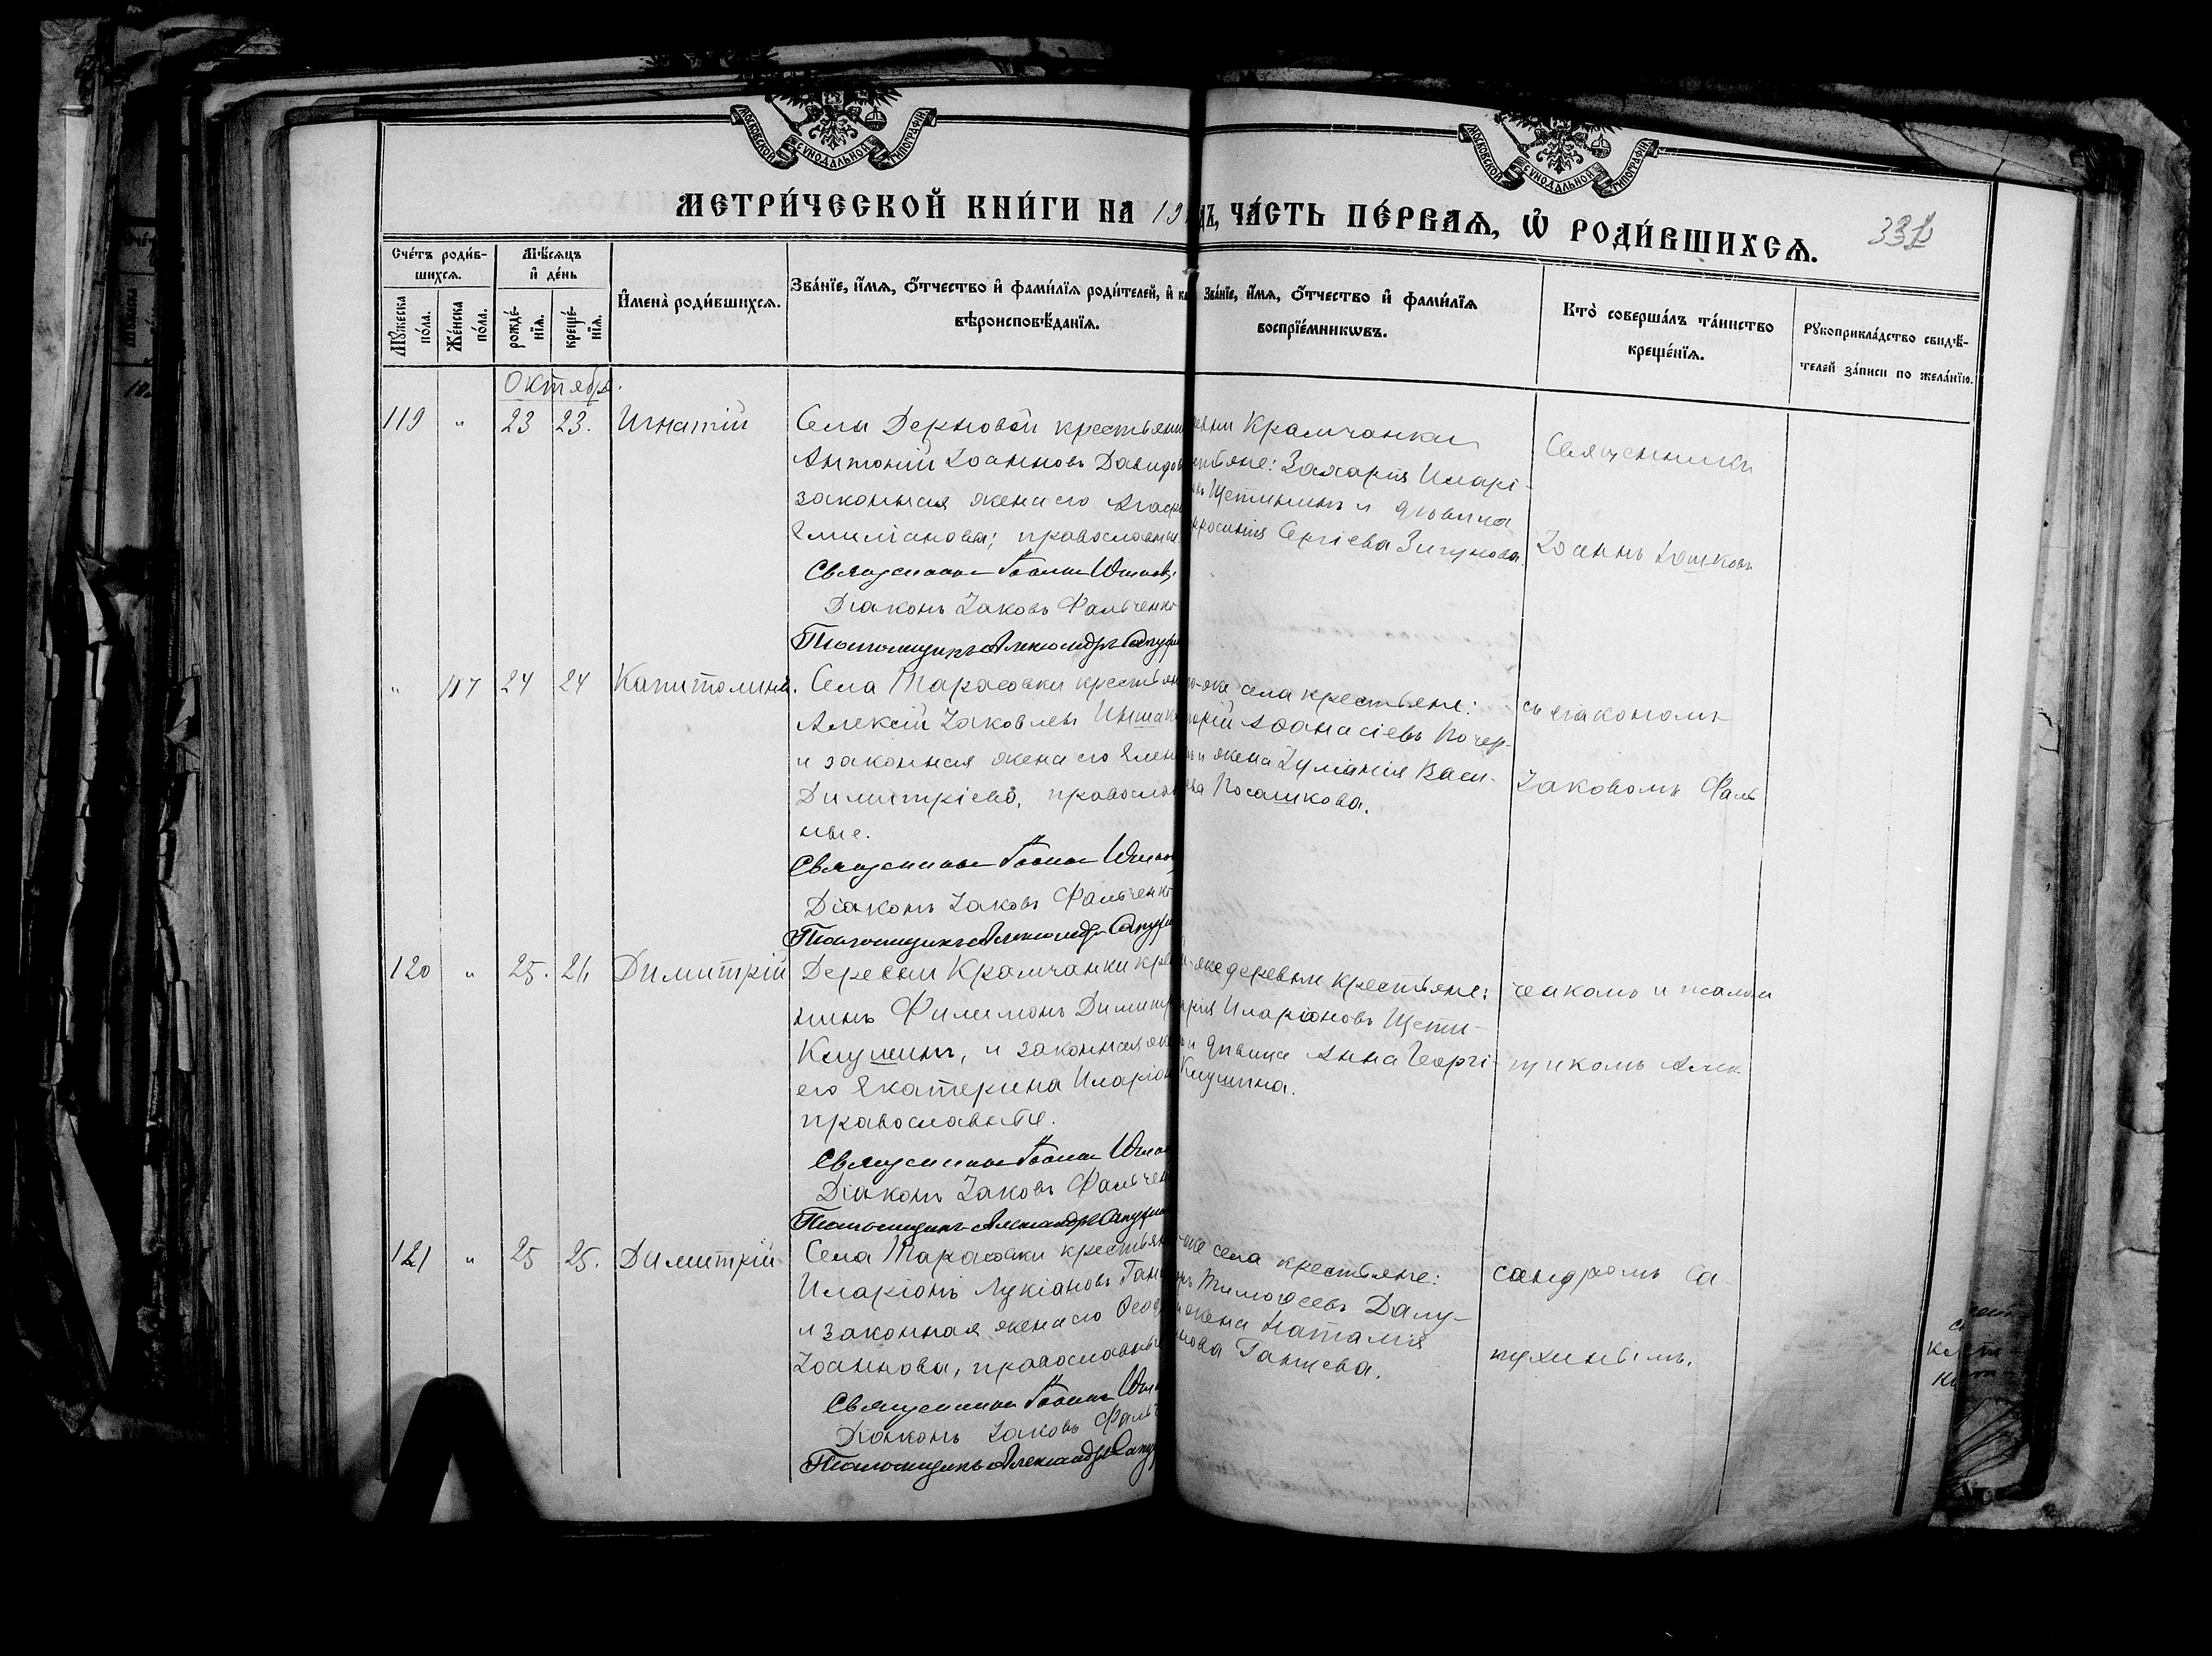 МОСКОВСКОЙ СѴНОДАЛЬНОЙ ТИПОГРАФІИ
МОСКОВСКОЙ СѴНОДАЛЬНОЙ ТИПОГРАФІИ
МЕТРИ́ЧЕСКОЙ КНИ́ГИ НА 19 дъ, ЧА́СТЬ ПЕ́РВАѦ, Ѡ РОДИ́ВШИХСѦ.
331
Сче́тъ роди́в-
шихсѧ.
Мꙋ́жеска по́ла.
Же́нска по́ла.
Мѣ́сѧцъ
и҆ де́нь
рожде́-нїѧ.
креще́-нїѧ.
И҆мена̀ роди́вшихсѧ.
Зва́нїе, и҆́мѧ, ѻ҆́тчество и҆ фами́лїѧ роди́телей, и҆ ка
вѣроисповѣ́данїѧ.
Зва́нїе, и҆́мѧ, ѻ҆́тчество и҆ фами́лїѧ
воспрїе́мникѡвъ.
Кто̀ соверша́лъ та́инство
креще́нїѧ.
Рꙋкоприкла́дство свидѣ́-
телей за́писи по жела́нїю.
Октябрь.
119 " 23 23. Игнатій
Села Дерновой крестьянин
Антоній Іоанновъ Давидов
законная жена его Агаф
Емиліанова; православные
Священникъ Іоаннъ
Діаконъ Іаковъ Фальченко
Псаломщикъ Александръ Сапухин
евни Крамчанки
стьяне: Захарія Иларі-
въ Щетининъ и дѣвица
фросинія Сергіева Зигунова.
Священникъ
Іоаннъ
" 117 24 24 Капитолина.
Села Тарасовки крестьян
Алексій Іаковлевъ
и законная жена его Елен
Димитріева, православ-
ные.
Священникъ Іоаннъ
Діаконъ Іаковъ Фальченко
Псаломщикъ Александръ Сапухин
го-же села крестьяне:
горій Аѳанасіевъ Почер-
и жена Іуліанія Васи-
ева Посашкова.
съ діакономъ
Іаковомъ Фаль
120 " 25. 26 Димитрій
Деревни Крамчанки кресть
нинъ Филимонъ Димитр
Клушинъ, и законная жен
его Екатерина Иларіон
православные.
Священникъ Іоаннъ
Діаконъ Іаковъ Фальчен
Псаломщикъ Александръ Сапухин
-же деревни крестьяне:
арія Иларіоновъ Щети-
и дѣвица Анна Георгі-
Клушина.
ченкомъ и псалом
щикомъ Алек
121 " 25 25. Димитрій
Села Тарасовки крестьян
Иларіонъ Лукіановъ Ган
и законная жена его Ѳеод
Іоаннова, православны
Священникъ Іоаннъ
Діаконъ Іаковъ Фальч
Псаломщикъ Александръ Сапу
-же села крестьяне:
Тимоѳеевъ Далу-
и жена Наталія
нова Ганшева.
сандромъ Са-
пухинымъ.